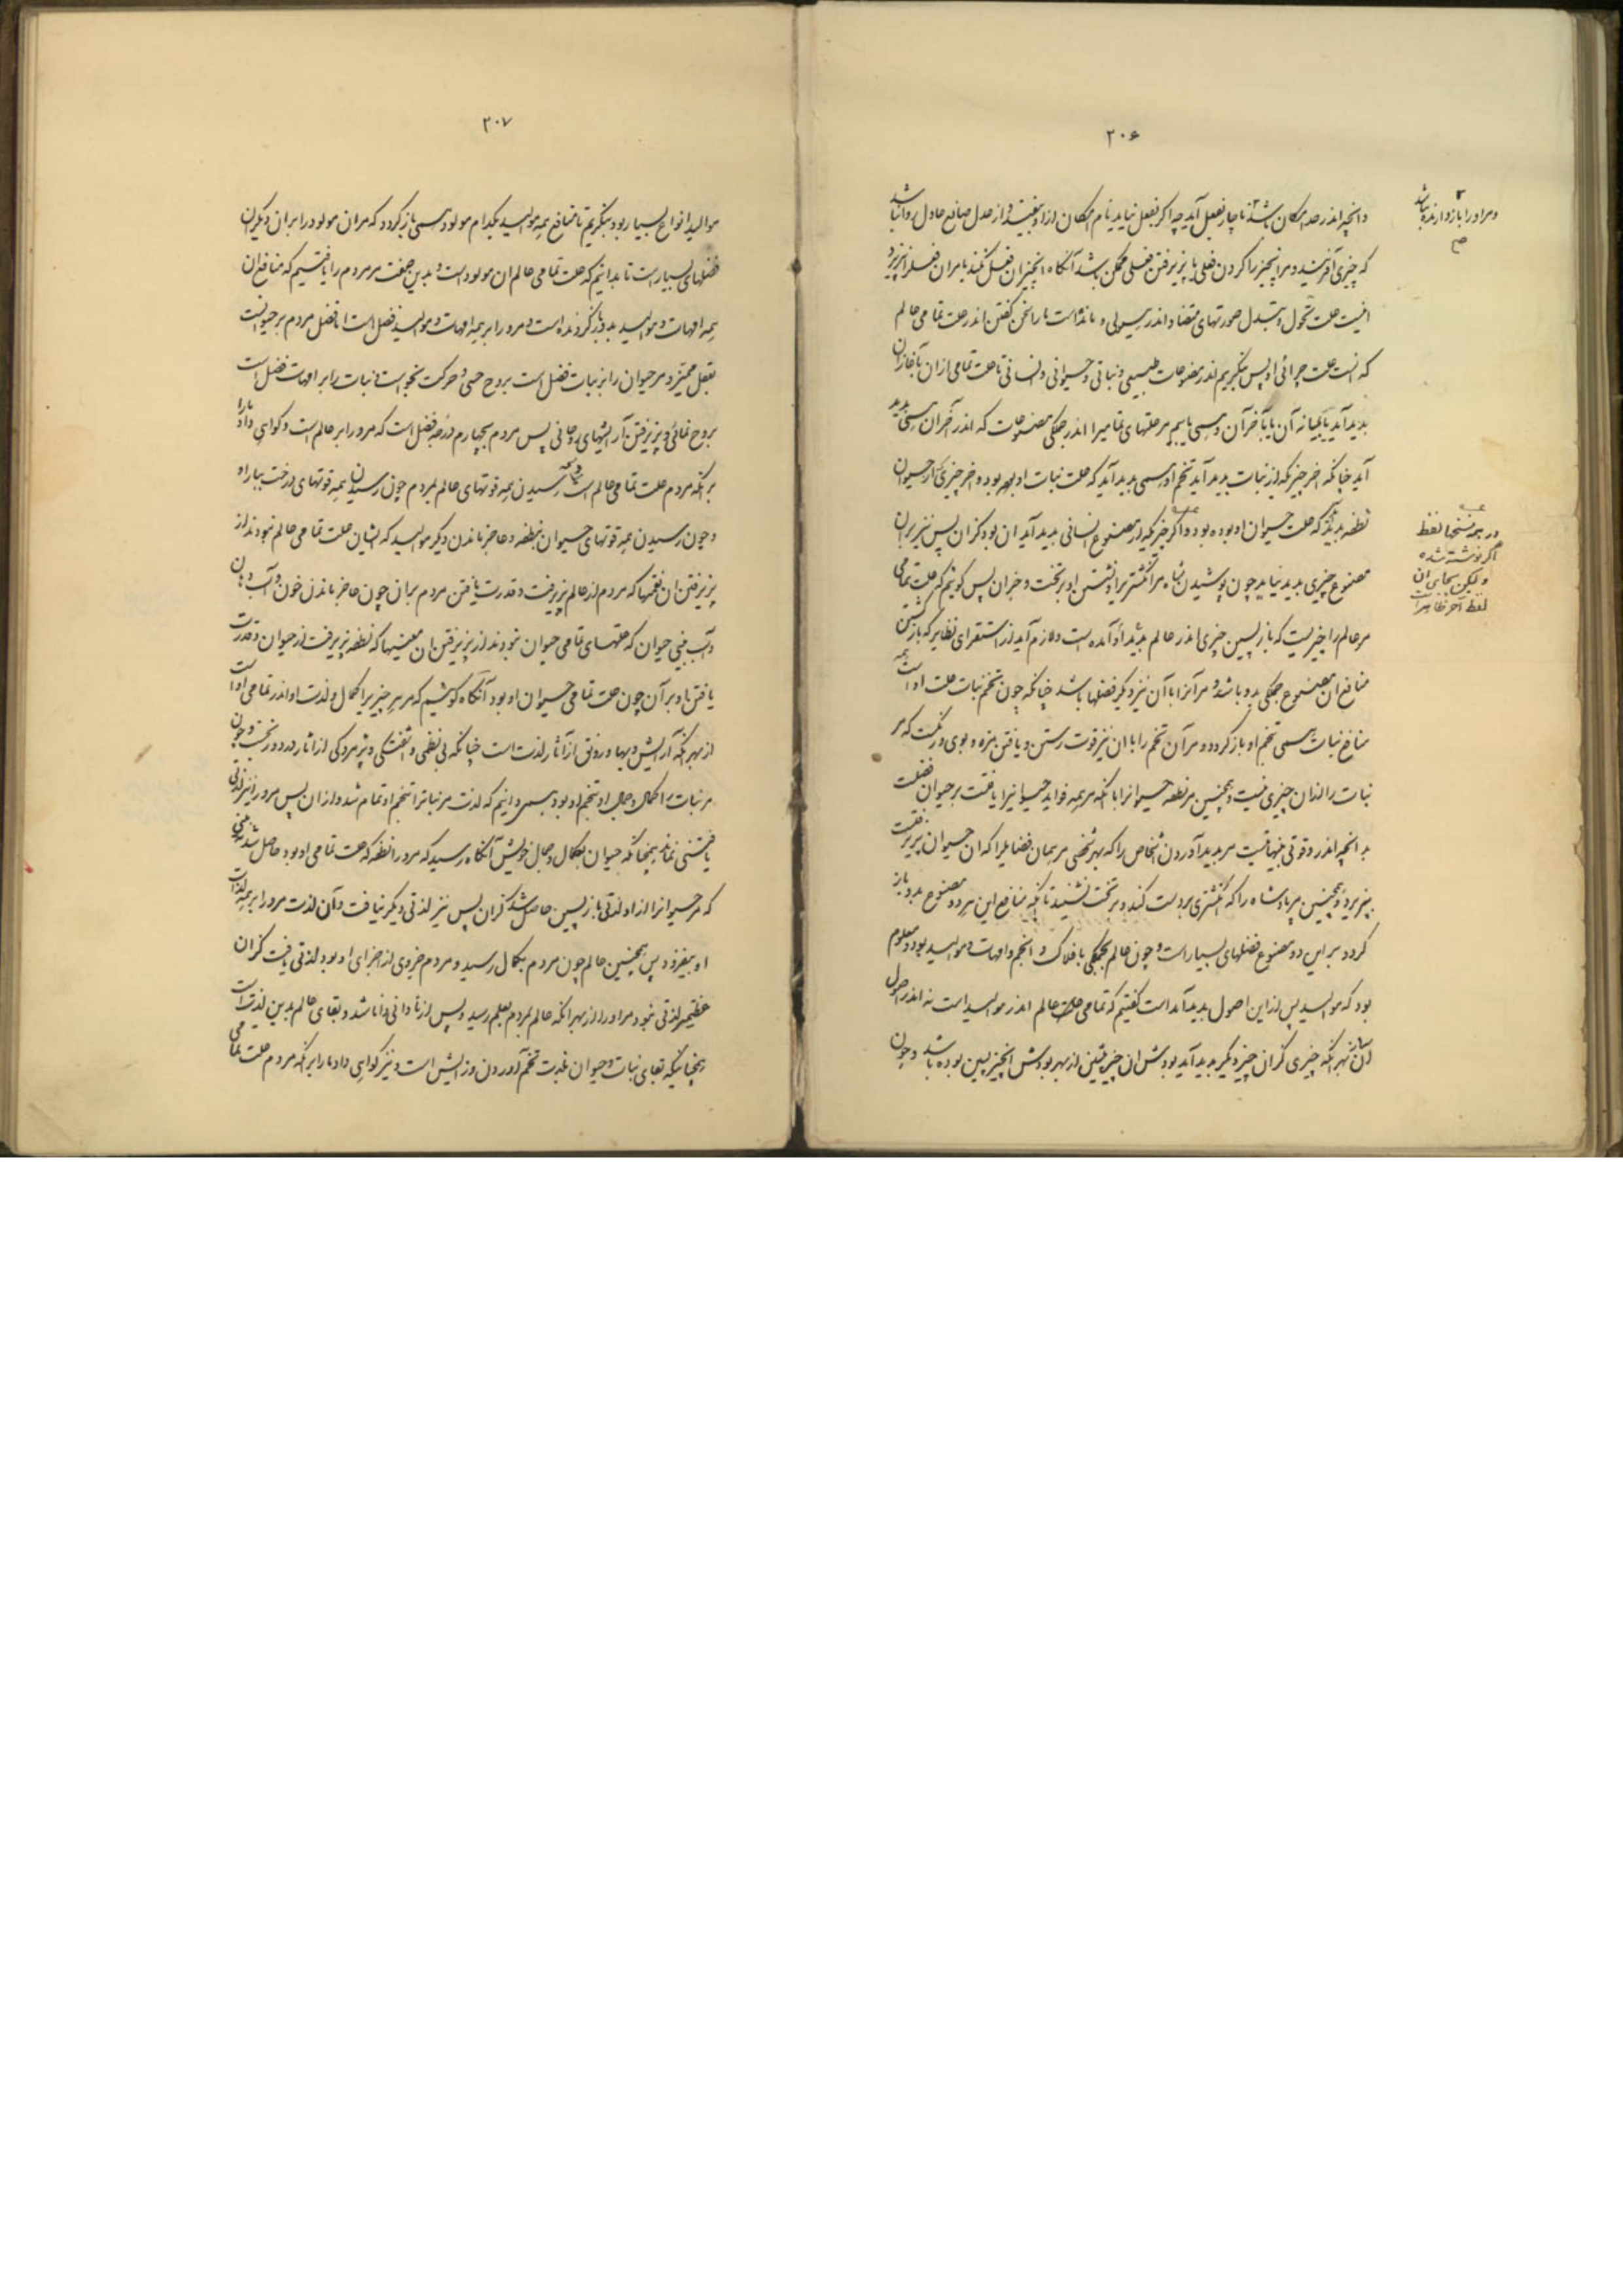 ۲۰۶
وانچه اندر حد امکان باشد ناچار بفعل آید چه اگر بفعل نیاید نام امکان ازو بیفتد و از عدل صانع عادل روا نباشد
که چیزی آفریند و مر انچیز را کردن فعلی یا پذیرفتن فعلی ممکن باشد آنگاه انچیز ان فعل نکند یا مران فعل را نپذیرد
اینست علت تحول و تبدل صورتهای متضاد اندر هیولی و ماندست ما را سخن گفتن اندر علت تمامی عالم
که انست علت چرائی او پس بنگریم اندر مصنوعات طبیعی و نباتی و حیوانی و انسانی تا علت تمامی ازان بآغازان
پدید آید یا بمیانه آن یا بآخر آن و همی یابیم مر علتهای تمامی را اندر همگی مصنوعات که اندر آخران همی پدید
آید چنانکه اخر چیزیکه از نبات پدید آید تخم او همی پدید آید که علت نبات او بود و اخر چیزی که از حیوان
نطفه پدید آید که علت حیوان او بوده بود و اگر چیزیکه از مصنوع انسانی پدید آید ان بود کزان پس نیز بران
مصنوع چیزی پدید نیاید چون پوشیدن شاه مر انگشتری را و نشستن او بر تخت و جزان پس گوئیم که علت تمامی
مر عالم را چیزیست که باز پسین چیزی اندر عالم پدید او آمده است و لازم آید از استقرای نظایر که بازگشتن
منافع ان مصنوع همگی بدو باشد و مر آنرا با آن نیز دیگر فضلها باشد چنانکه چون تخم نبات علت او است همه
منافع نبات همی بتخم او بازگردد و مر آن تخم را با ان نیز قوت رستن و یافتن مزه و بوی و رنگست که مر
نبات را ازان چیزی نیست و همچنین مر نطفه حیوانرا با آنکه مر همه فواید حیوانیرا یافت بر حیوان فضلست
بد انچه اندرو قوتی بینهایتست مر پدید آوردن اشخاص را که بهر شخصی مر همان فضایل را که ان حیوان پذیرفتست
بپذیرد و همچنین مر پادشاه را که انگشتری بدست کند و بر تخت نشیند تا آنکه منافع این هر دو مصنوع بدو باز
گردد بر این دو مصنوع فضلهای بسیار است و چون عالم بهمگی با فلاک و انجم و امهات و موالید بود و معلوم
بود که موالید پس از این اصول پدید آمد است گفتیم که تمامی علت عالم اندر موالید است نه اندر اصول
ازان بهر آنکه چیزی کزان چیز دیگر پدید آید بودش ان چیز پیشین از بهر بودش انچیز پسین بوده باشد و چون
و مر او را باز دارنده نباشد
صح
در همه نسخها لفظ
اگر نوشته شده
و لیکن بجای ان
لفظ اخر ظاهر است
۲۰۷
موالید انواع بسیار بود بنگریم تا منافع همه موالید بکدام مولود همی بازگردد که مران مولود را بران دیگران
فضلهای بسیار است تا بدانیم که علت تمامی عالم ان مولود است و بدین صفت مر مردم را یافتیم که منافع ان
همه امهات و موالید بدو بازگردنده است و مرو را بر همه امهات و موالید فضل است اما فضل مردم بر حیوانست
بعقل ممیز و مر حیوان را بر نبات فضل است بروح حسی و حرکت بخواست و نبات را بر امهات فضل است
بروح نمائی و پذیرفتن آرایشهای روحانی پس مردم بچهارم درجه فضل است که مرو را بر عالم است و گواهی داد ما را
بر آنکه مردم علت تمامی عالم است رسیدن همه قوتهای عالم بمردم چون رسیدن همه قوتهای درخت ببار او
و چون رسیدن همه قوتهای حیوان بنطفه و عاجز ماندن دیگر موالید که ایشان علت تمامی عالم نبودند از
پذیرفتن ان نعمتها که مردم از عالم پذیرفت و قدرت یافتن مردم بران چون عاجز ماندن خون و آب دهان
و آب بینی حیوان که علتهای تمامی حیوان نبودند از پذیرفتن ان معنیها که نطفه پذیرفت از حیوان و قدرت
یافتن او بر آن چون علت تمامی حیوان او بود آنگاه گوئیم که مر هر چیزیرا کمال و لذت او اندر تمامی او است
از بهر آنکه آرایش و بها و رونق از آثار لذت است چنانکه بی نظمی و آشفتگی و پژمردگی از اثار درد و رنجست و چون
مر نبات را کمال و جمال او بتخم او بود همی دانیم که لذت مر نباترا بتخم او تمام شد و ازان پس مرورا نیز لذتی
یافتنی نماند همچنانکه حیوان بکمال و جمال خویش آنگاه رسید که مرو را نطفه که علت تمامی او بود حاصل شد یعنی
که مر حیوانرا از او لذتی باز پسین حاصل شد کزان پس نیز لذتی دیگر نیافت و آن لذت مرو را بر همه لذات
او بیفزود پس همچنین عالم چون مردم بکمال رسید و مردم جزوی از اجزای او بود لذتی یافت کزان
عظیمتر لذتی نبود مر او را از بهر انکه عالم بمردم بعلم رسید و پس از نادانی دانا شد و بقای عالم بدین لذت است
همچنانکه بقای نبات و حیوان بلذت تخم آوردن و زایش است و نیز گواهی داد ما را بر آنکه مردم علت تمامی